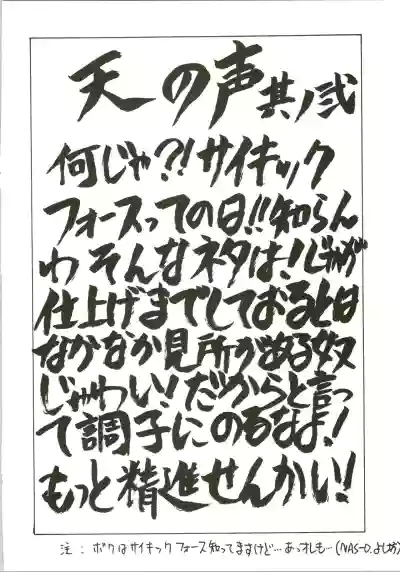 天の声 其ノ弐
何じゃ?!サイキック
フォースっての日!!知らん
わそんなネタは!じゃが
仕上げまでしておるとは
なかなか見所がある奴
じゃわい!だからと言っ
て調子にのるなよ!
もっと精進せんかい!
注:ボクはサイキックフォース知ってますけど…あっオレも…(NAS-O.よし坊)